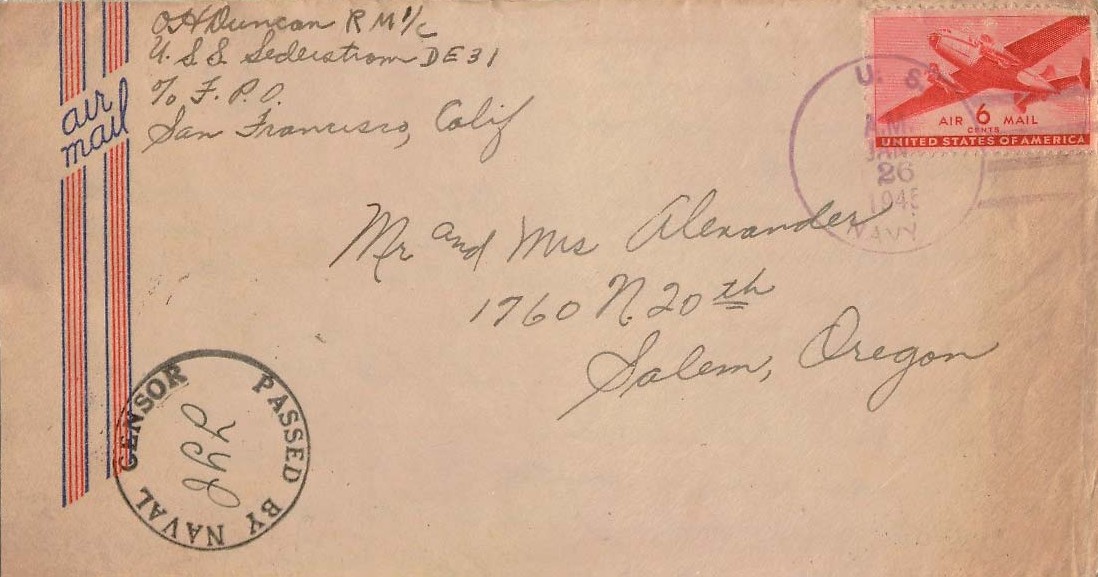 OH Duncan RM 1/c
U.S.S. Sederstrom DE31
c/o F.P.O.
San Francisco, Calif
air
mail
AIR 6 MAIL
CENTS
UNITED STATES OF AMERICA
U. S.
A.M.
JAN
26
1945
NAVY
Mr and Mrs Alexander
1760 N. 20th
Salem, Oregon
PASSED BY NAVAL CENSOR